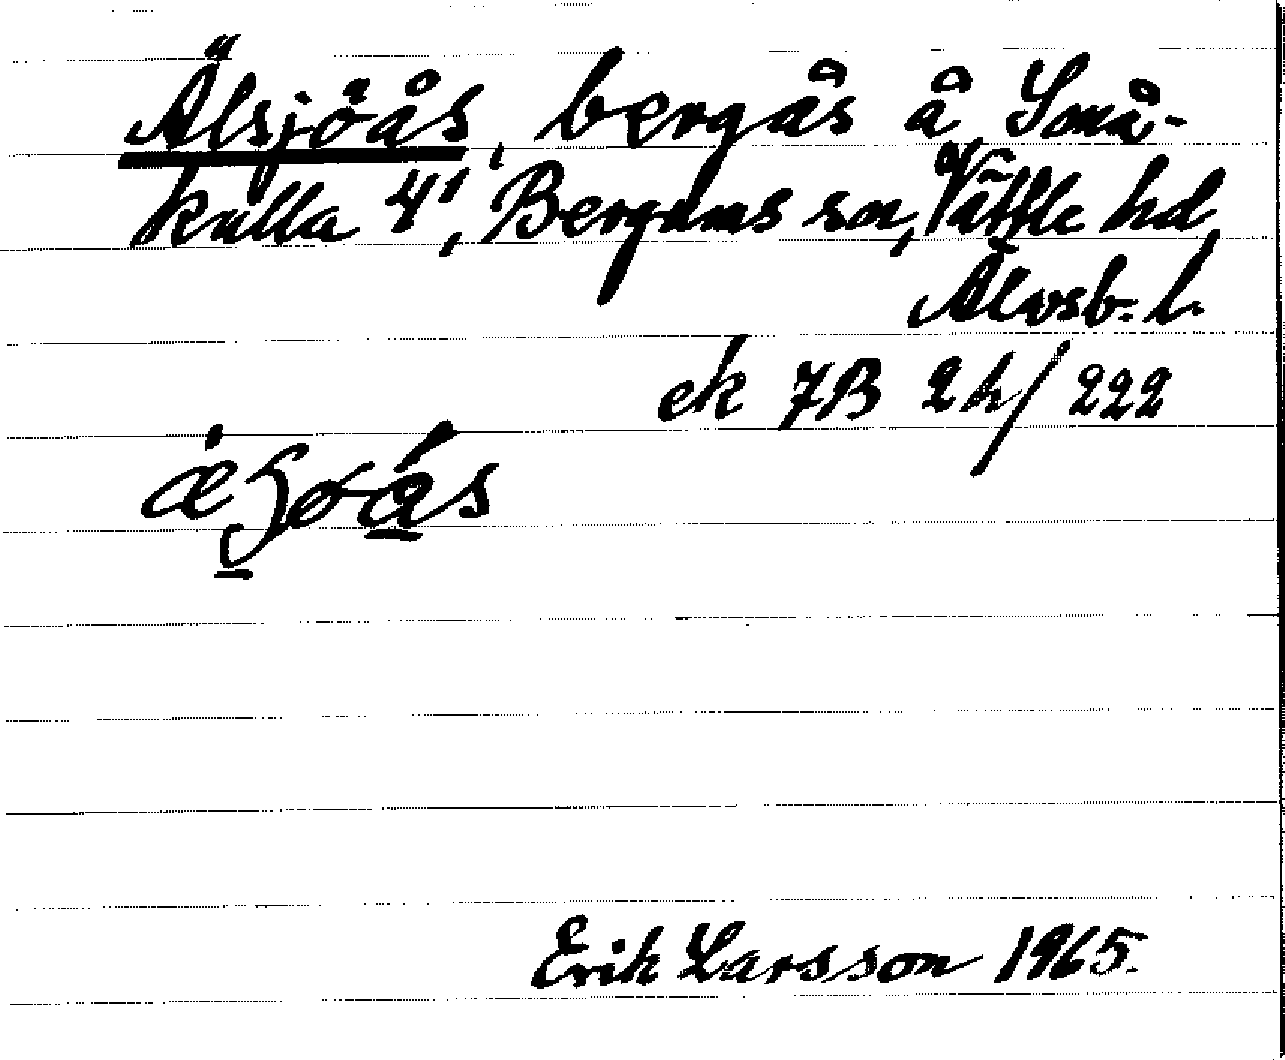 Älsjöås, bergås å Små-
kulla 4¹, Bergums sn, Vättle hd
Älvsb. l.
ek 7B 2h/222
Erik Larsson 1965.